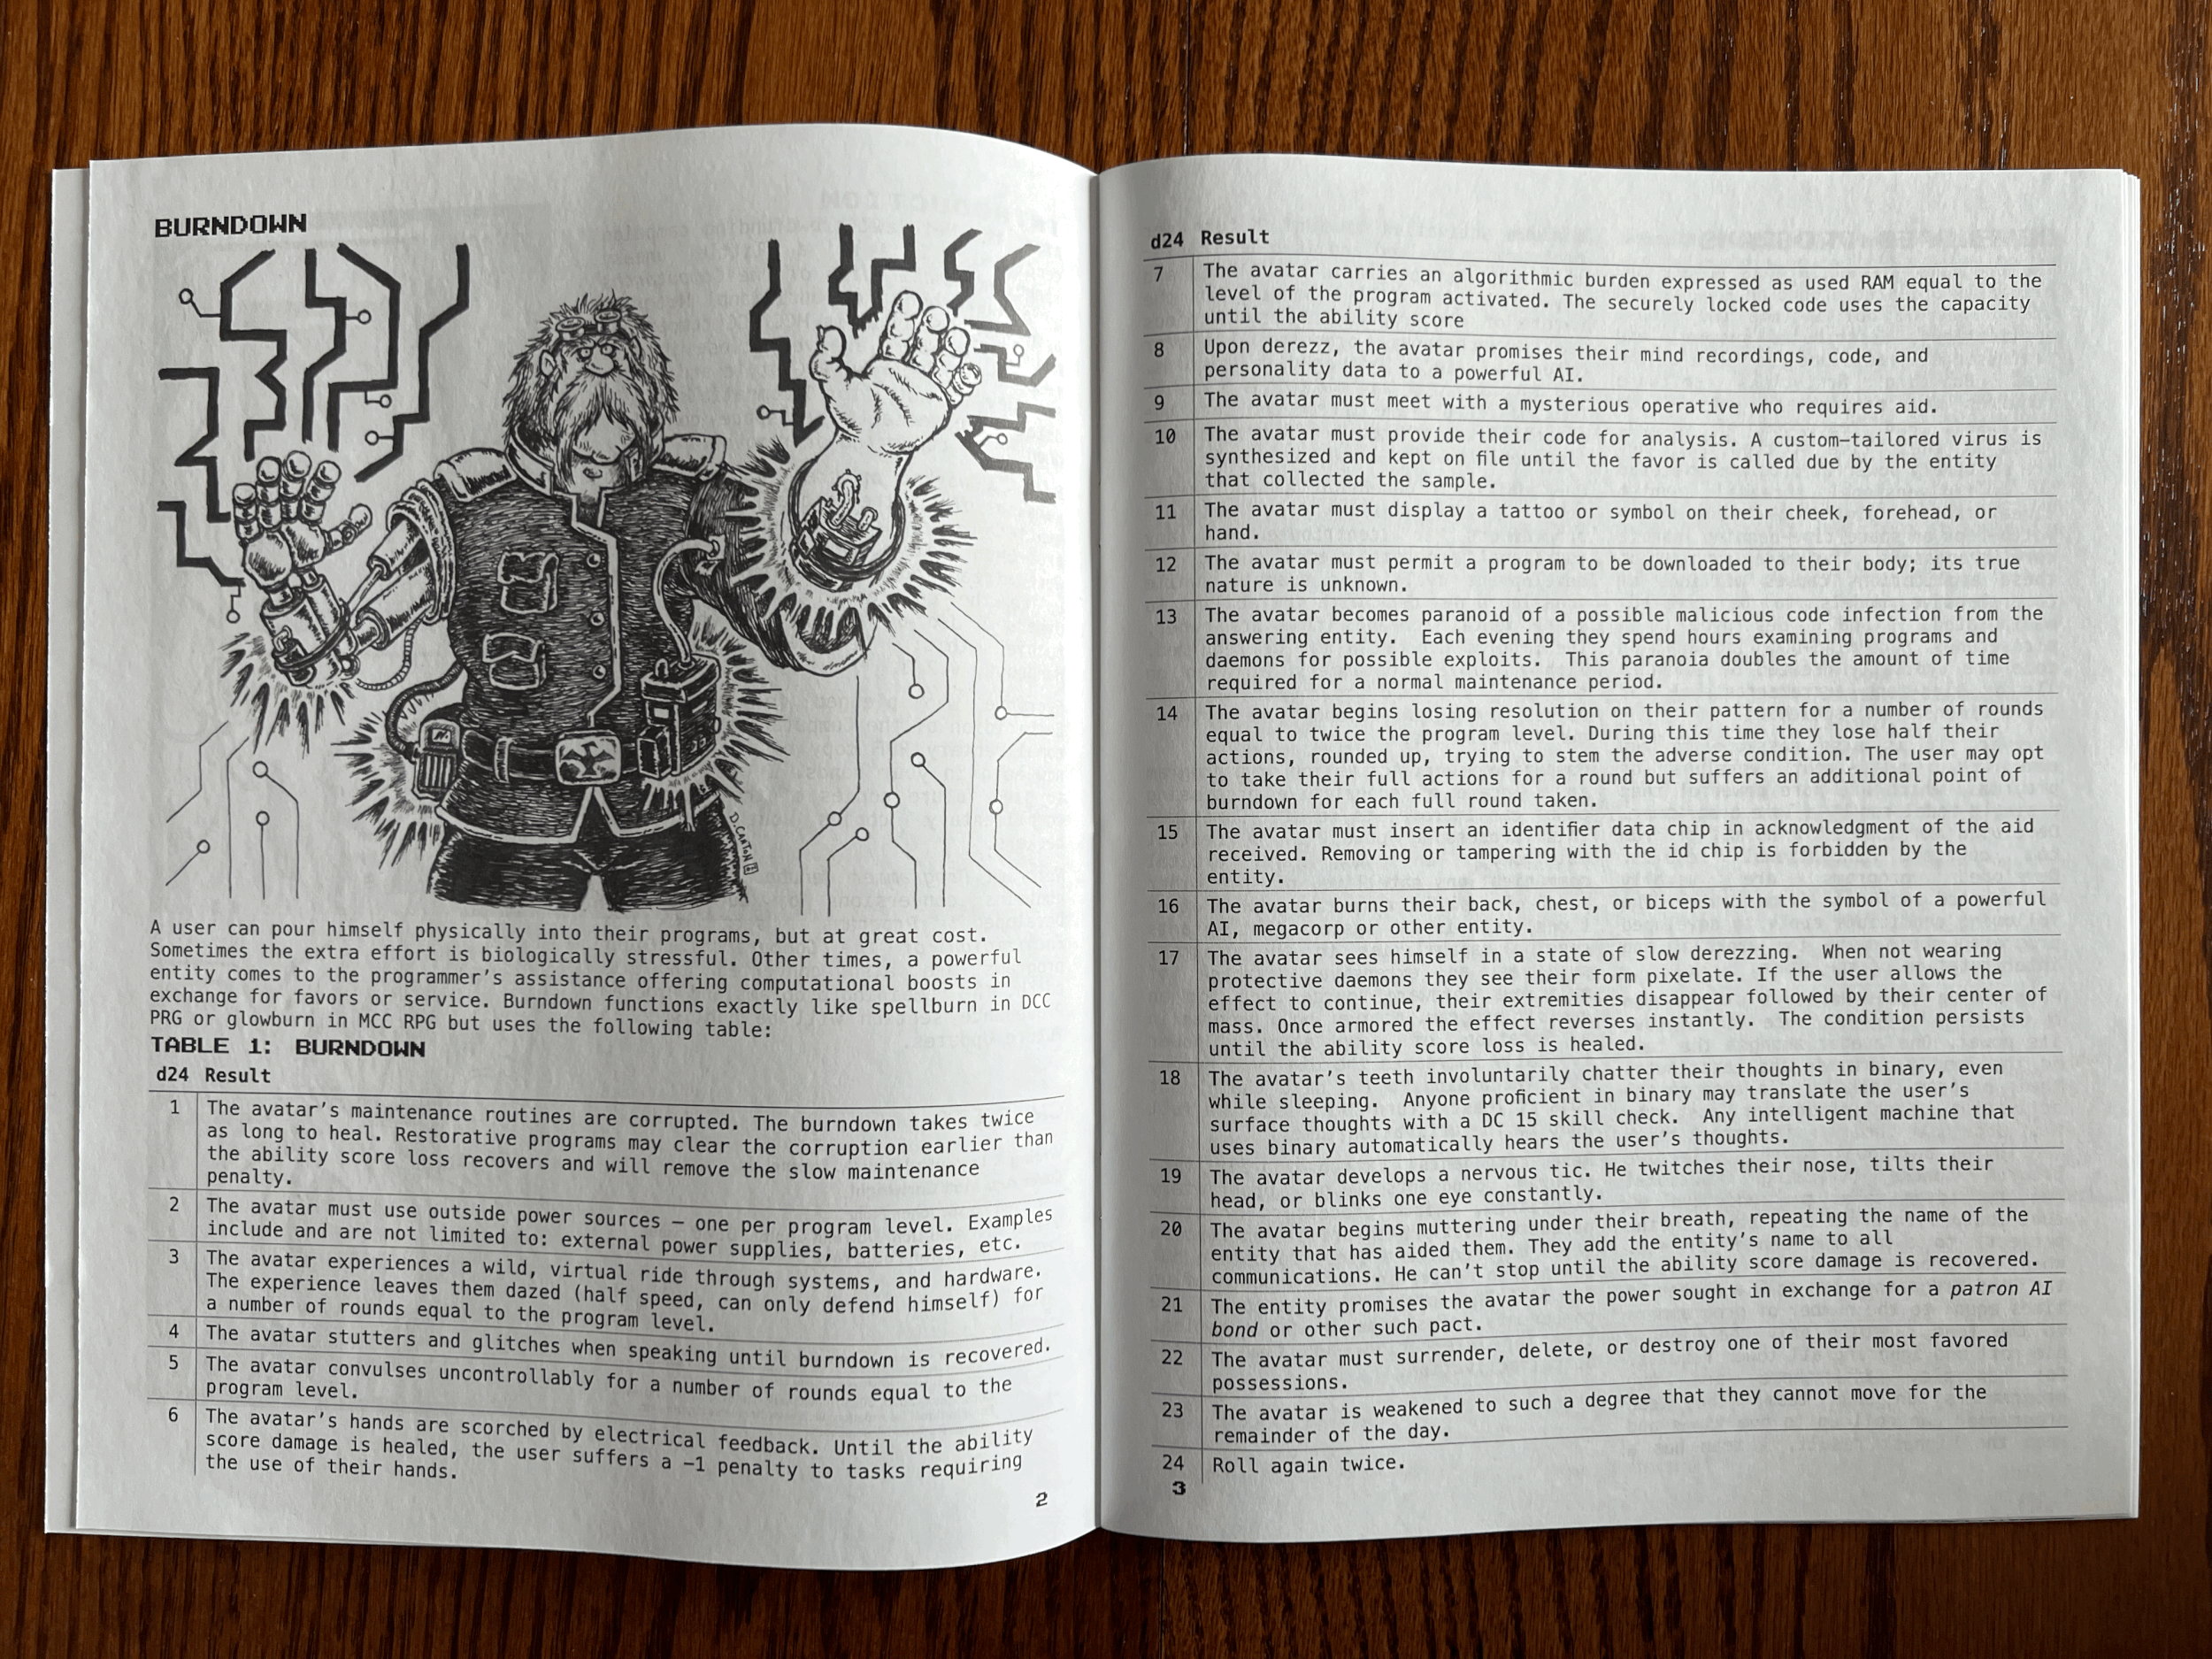 BURNDOWN
D.CARTON
A user can pour himself physically into their programs, but at great cost.
Sometimes the extra effort is biologically stressful. Other times, a powerful
entity comes to the programmer's assistance offering computational boosts in
exchange for favors or service. Burndown functions exactly like spellburn in DCC
PRG or glowburn in MCC RPG but uses the following table:
TABLE 1: BURNDOWN
d24 Result
1 The avatar's maintenance routines are corrupted. The burndown takes twice
as long to heal. Restorative programs may clear the corruption earlier than
the ability score loss recovers and will remove the slow maintenance
penalty.
2 The avatar must use outside power sources – one per program level. Examples
include and are not limited to: external power supplies, batteries, etc.
3 The avatar experiences a wild, virtual ride through systems, and hardware.
The experience leaves them dazed (half speed, can only defend himself) for
a number of rounds equal to the program level.
4 The avatar stutters and glitches when speaking until burndown is recovered.
5 The avatar convulses uncontrollably for a number of rounds equal to the
program level.
6 The avatar's hands are scorched by electrical feedback. Until the ability
score damage is healed, the user suffers a –1 penalty to tasks requiring
the use of their hands.
2
d24 Result
7 The avatar carries an algorithmic burden expressed as used RAM equal to the
level of the program activated. The securely locked code uses the capacity
until the ability score
8 Upon derezz, the avatar promises their mind recordings, code, and
personality data to a powerful AI.
9 The avatar must meet with a mysterious operative who requires aid.
10 The avatar must provide their code for analysis. A custom-tailored virus is
synthesized and kept on file until the favor is called due by the entity
that collected the sample.
11 The avatar must display a tattoo or symbol on their cheek, forehead, or
hand.
12 The avatar must permit a program to be downloaded to their body; its true
nature is unknown.
13 The avatar becomes paranoid of a possible malicious code infection from the
answering entity. Each evening they spend hours examining programs and
daemons for possible exploits. This paranoia doubles the amount of time
required for a normal maintenance period.
14 The avatar begins losing resolution on their pattern for a number of rounds
equal to twice the program level. During this time they lose half their
actions, rounded up, trying to stem the adverse condition. The user may opt
to take their full actions for a round but suffers an additional point of
burndown for each full round taken.
15 The avatar must insert an identifier data chip in acknowledgment of the aid
received. Removing or tampering with the id chip is forbidden by the
entity.
16 The avatar burns their back, chest, or biceps with the symbol of a powerful
AI, megacorp or other entity.
17 The avatar sees himself in a state of slow derezzing. When not wearing
protective daemons they see their form pixelate. If the user allows the
effect to continue, their extremities disappear followed by their center of
mass. Once armored the effect reverses instantly. The condition persists
until the ability score loss is healed.
18 The avatar's teeth involuntarily chatter their thoughts in binary, even
while sleeping. Anyone proficient in binary may translate the user's
surface thoughts with a DC 15 skill check. Any intelligent machine that
uses binary automatically hears the user's thoughts.
19 The avatar develops a nervous tic. He twitches their nose, tilts their
head, or blinks one eye constantly.
20 The avatar begins muttering under their breath, repeating the name of the
entity that has aided them. They add the entity's name to all
communications. He can't stop until the ability score damage is recovered.
21 The entity promises the avatar the power sought in exchange for a patron AI
bond or other such pact.
22 The avatar must surrender, delete, or destroy one of their most favored
possessions.
23 The avatar is weakened to such a degree that they cannot move for the
remainder of the day.
24 Roll again twice.
3